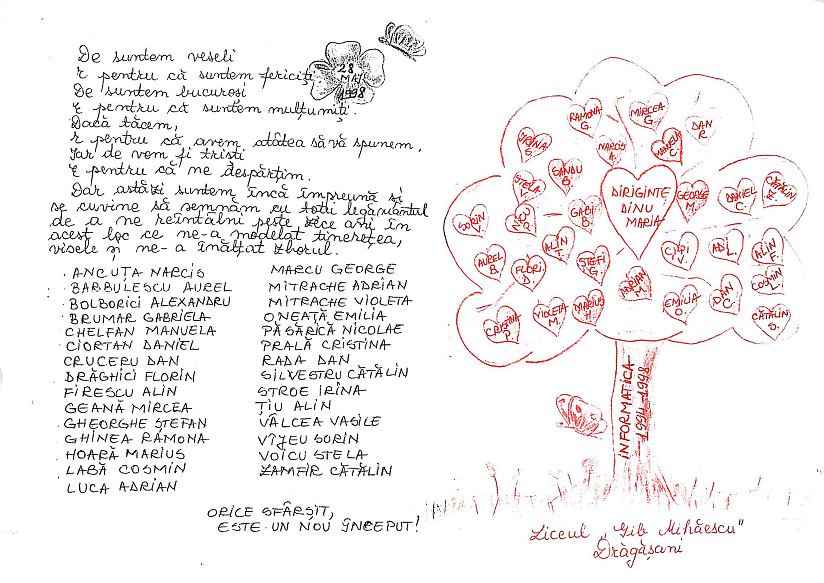 De suntem veseli
E pentru că suntem fericiți.
De suntem bucuroși
E pentru că suntem mulțumiți.
Dacă tăcem,
E pentru că avem atâtea să vă spunem,
Iar de vom fi triști
E pentru că ne despărțim.
Dar astăzi suntem încă împreună și
se cuvine să semnăm cu toții legământul
de a ne reîntâlni peste zece ani în
acest loc ce ne-a modelat tinerețea,
visele și ne-a înălțat zborul.
28
MAI
1998
ANCUȚA NARCIS
BARBULESCU AUREL
BOLBORICI ALEXANDRU
BRUMAR GABRIELA
CHELFAN MANUELA
CIORTAN DANIEL
CRUCERU DAN
DRĂGHICI FLORIN
FIRESCU ALIN
GEANĂ MIRCEA
GHEORGHE ȘTEFAN
GHINEA RAMONA
HOARĂ MARIUS
LABĂ COSMIN
LUCA ADRIAN
MARCU GEORGE
MITRACHE ADRIAN
MITRACHE VIOLETA
ONEAȚĂ EMILIA
PĂSĂRICĂ NICOLAE
PRALĂ CRISTINA
RADA DAN
SILVESTRU CĂTĂLIN
STROE IRINA
ȚIU ALIN
VÂLCEA VASILE
VÎJEU SORIN
VOICU STELA
ZAMFIR CĂTĂLIN
ORICE SFÂRȘIT,
ESTE UN NOU ÎNCEPUT!
RAMONA
G.
MIRCEA
G.
DAN
R.
IRINA
S.
NARCIS
A.
MANUELA
C.
SANDU
B.
STELA
V.
DIRIGINTE
DINU
MARIA
GEORGE
M.
DANIEL
C.
CĂTĂLIN
Z.
SORIN
V.
NICU
P.
GABI
B.
ALIN
T.
AUREL
B.
FLORI
D.
ȘTEFI
G.
CIPI
V.
ADI
L.
ALIN
F.
ADRIAN
M.
EMILIA
O.
DAN
C.
COSMIN
L.
CRISTINA
P.
VIOLETA
M.
MARIUS
H.
CĂTĂLIN
S.
INFORMATICA
1994-1998
Liceul „Gib Mihăescu"
Drăgășani